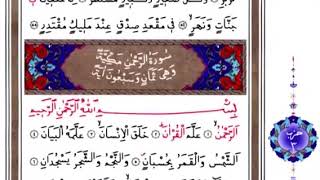 جَنَّاتٍ وَنَهَرٍ ۝ فٖى مَقْعَدِ صِدْقٍ عِنْدَ مَلٖيكٍ مُقْتَدِرٍ ۝
سُورَةُ الرَّحْمٰنِ مَكِّيَّةٌ
وَهِىَ ثَمَانٍ وَسَبْعُونَ اٰيَةً
بِسْمِ اللّٰهِ الرَّحْمٰنِ الرَّحٖيمِ
اَلرَّحْمٰنُ ۝ عَلَّمَ الْقُرْاٰنَ ۝ خَلَقَ الْاِنْسَانَ ۝ عَلَّمَهُ الْبَيَانَ ۝
اَلشَّمْسُ وَالْقَمَرُ بِحُسْبَانٍ ۝ وَالنَّجْمُ وَالشَّجَرُ يَسْجُدَانِ ۝